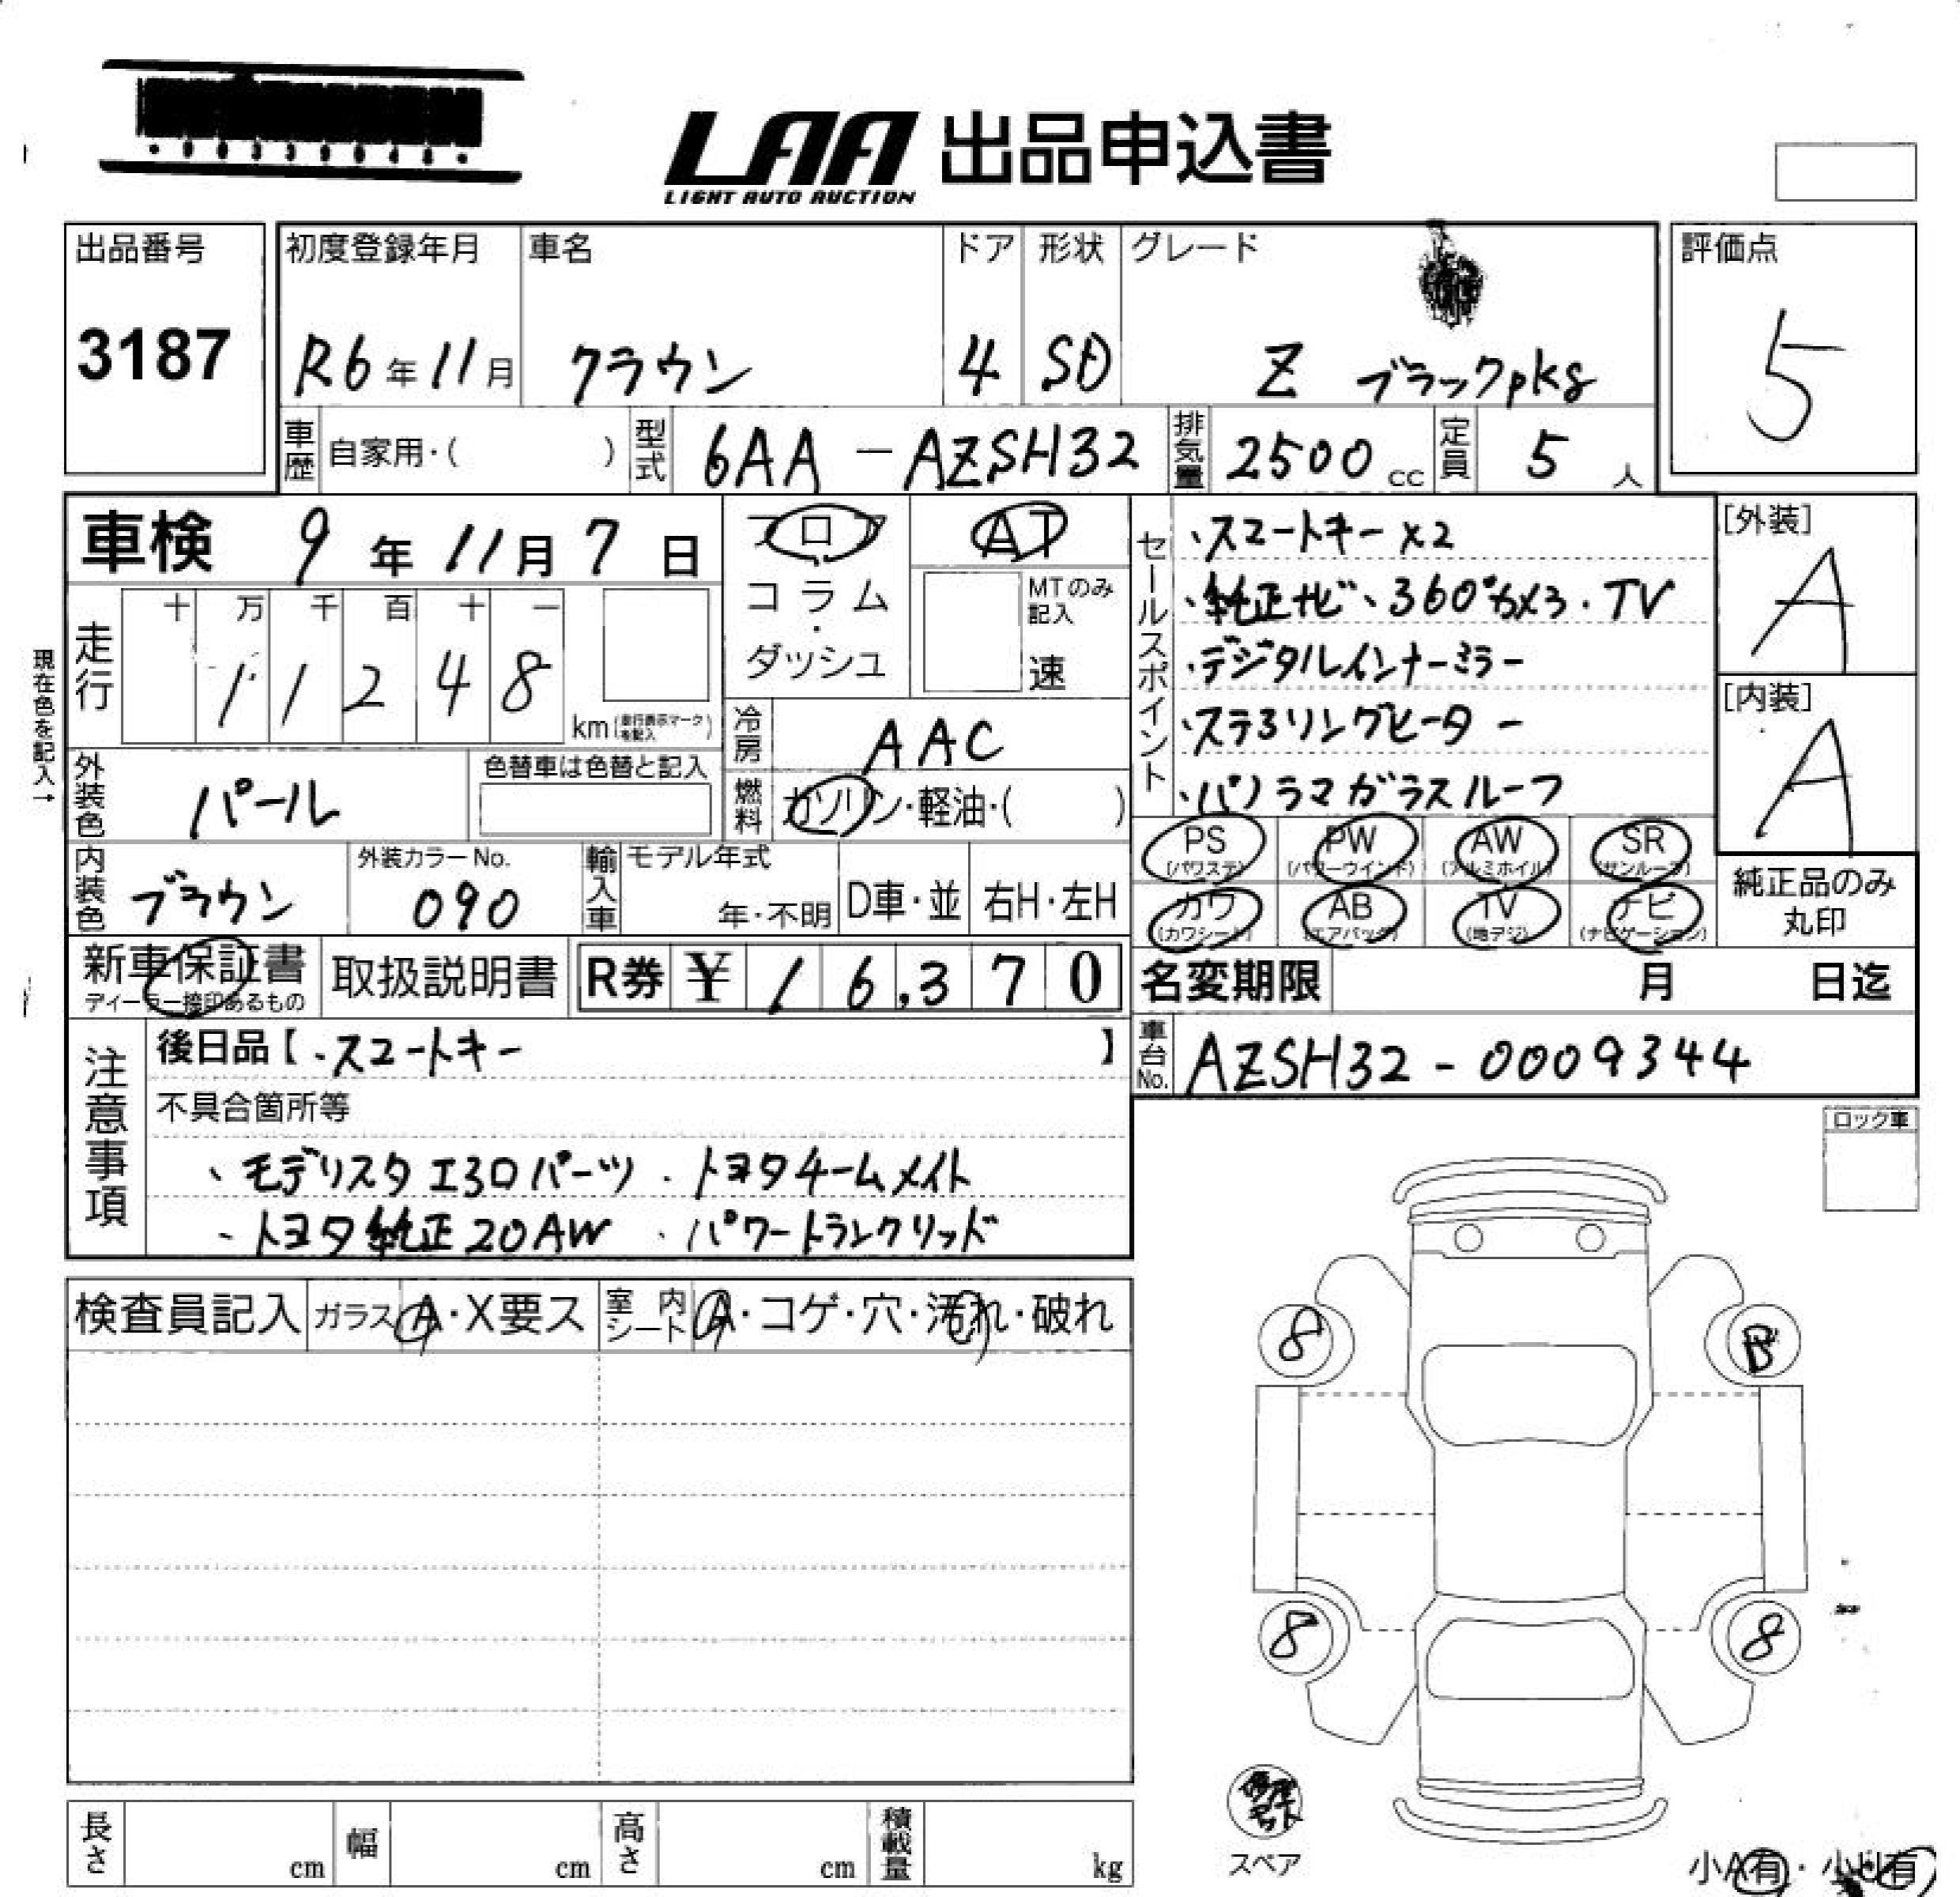 LAA 出品申込書
LIGHT AUTO AUCTION
出品番号
3187
初度登録年月
R6年11月
車名
クラウン
ドア
4
形状
SD
グレード
Z ブラックpkg
評価点
5
車歴 自家用・( )
型式 6AA-AZSH32
排気量 2500cc
定員 5人
車検 9年11月7日
フロア
・
コラム
・
ダッシュ
AT
MTのみ記入
速
セールスポイント
・スマートキー×2
・純正ナビ、360°カメラ・TV
・デジタルインナーミラー
・ステアリングヒーター
・パノラマガラスルーフ
[外装]
A
[内装]
A
現在色を記入→
走行
十 万 千 百 十 一
11248
km(走行表示マークを記入)
冷房 AAC
外装色 パール
色替車は色替と記入
燃料 ガソリン・軽油・( )
PS (パワステ)
PW (パワーウインド)
AW (アルミホイル)
SR (サンルーフ)
カワ (カワシート)
AB (エアバッグ)
TV (地デジ)
ナビ (ナビゲーション)
純正品のみ
丸印
内装色 ブラウン
外装カラーNo.
090
輸入車
モデル年式
年・不明
D車・並
右H・左H
新車保証書
ディーラー捺印あるもの
取扱説明書
R券 ¥16,370
名変期限 月 日迄
車台No. AZSH32-0009344
注意事項
後日品【・スマートキー 】
不具合箇所等
、モデリスタエアロパーツ ・トヨタチームメイト
・トヨタ純正20AW ・パワートランクリッド
ロック車
検査員記入
ガラス A・X要ス
室内シート A・コゲ・穴・汚れ・破れ
8
8
8
スペア
長さ cm
幅 cm
高さ cm
積載量 kg
小A有・小U有